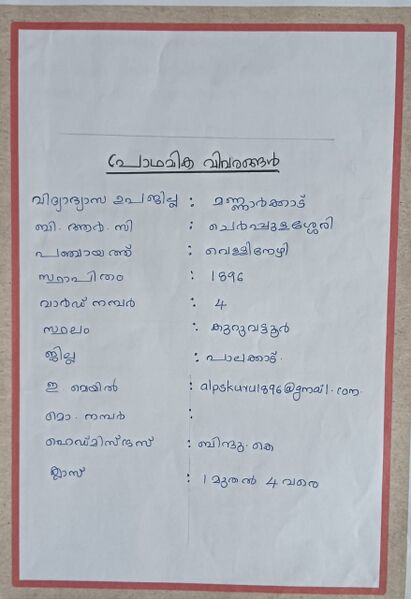 പ്രാഥമിക വിവരങ്ങൾ
വിദ്യാഭ്യാസ ഉപജില്ല : മണ്ണാർക്കാട്
ബി. ആർ. സി : ചെർപ്പുളശ്ശേരി
പഞ്ചായത്ത് : വെള്ളിനേഴി
സ്ഥാപിതം : 1896
വാർഡ് നമ്പർ : 4
സ്ഥലം : കുറുവട്ടൂർ
ജില്ല : പാലക്കാട്.
ഇ മെയിൽ : alpskuru1896@gmail.com
മൊ. നമ്പർ :
ഹെഡ്മിസ്ട്രസ് : ബിന്ദു. കെ
ക്ലാസ് : 1 മുതൽ 4 വരെ